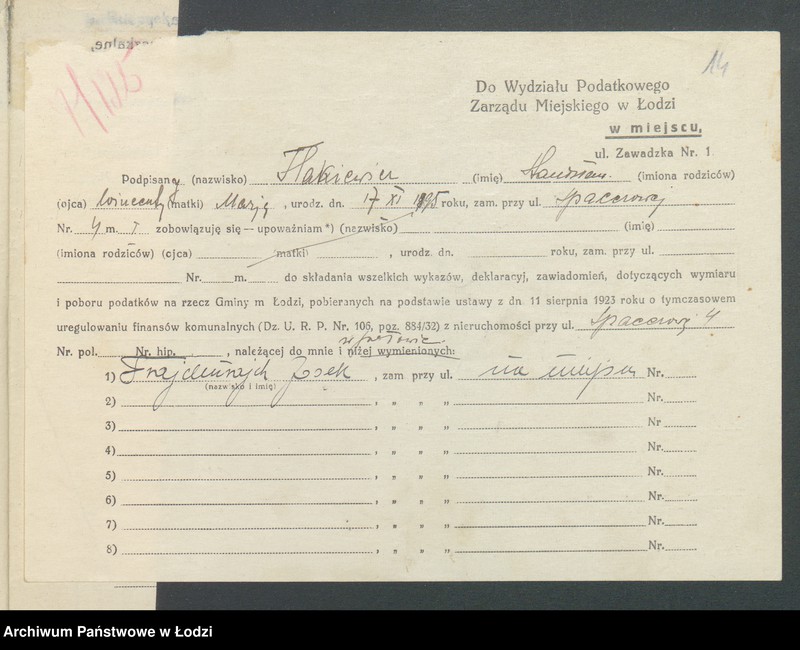 14
Do Wydziału Podatkowego
Zarządu Miejskiego w Łodzi
w miejscu,
ul. Zawadzka Nr. 1
Podpisany (nazwisko) (imię) (imiona rodziców)
(ojca) Wincenty (matki) Marja, urodz. dn. 17 XI 1895 roku, zam. przy ul. Spacerowej
Nr. 4 m. zobowiązuję się — upoważniam *) (nazwisko) (imię)
(imiona rodziców) (ojca) (matki) , urodz. dn. roku, zam. przy ul.
Nr. m. do składania wszelkich wykazów, deklaracyj, zawiadomień, dotyczących wymiaru
i poboru podatków na rzecz Gminy m Łodzi, pobieranych na podstawie ustawy z dn. 11 sierpnia 1923 roku o tymczasowem
uregulowaniu finansów komunalnych (Dz. U. R. P. Nr. 106, poz. 884/32) z nieruchomości przy ul. Spacerowej 4
Nr. pol. Nr. hip. , należącej do mnie i niżej wymienionych:
1) Josek , zam przy ul. na miejscu Nr.
(nazwisko i imię)
2) , „ „ „ Nr.
3) , „ „ „ Nr.
4) , „ „ „ Nr.
5) , „ „ „ Nr.
6) , „ „ „ Nr.
7) , „ „ „ Nr.
8) , „ „ „ Nr.
Archiwum Państwowe w Łodzi